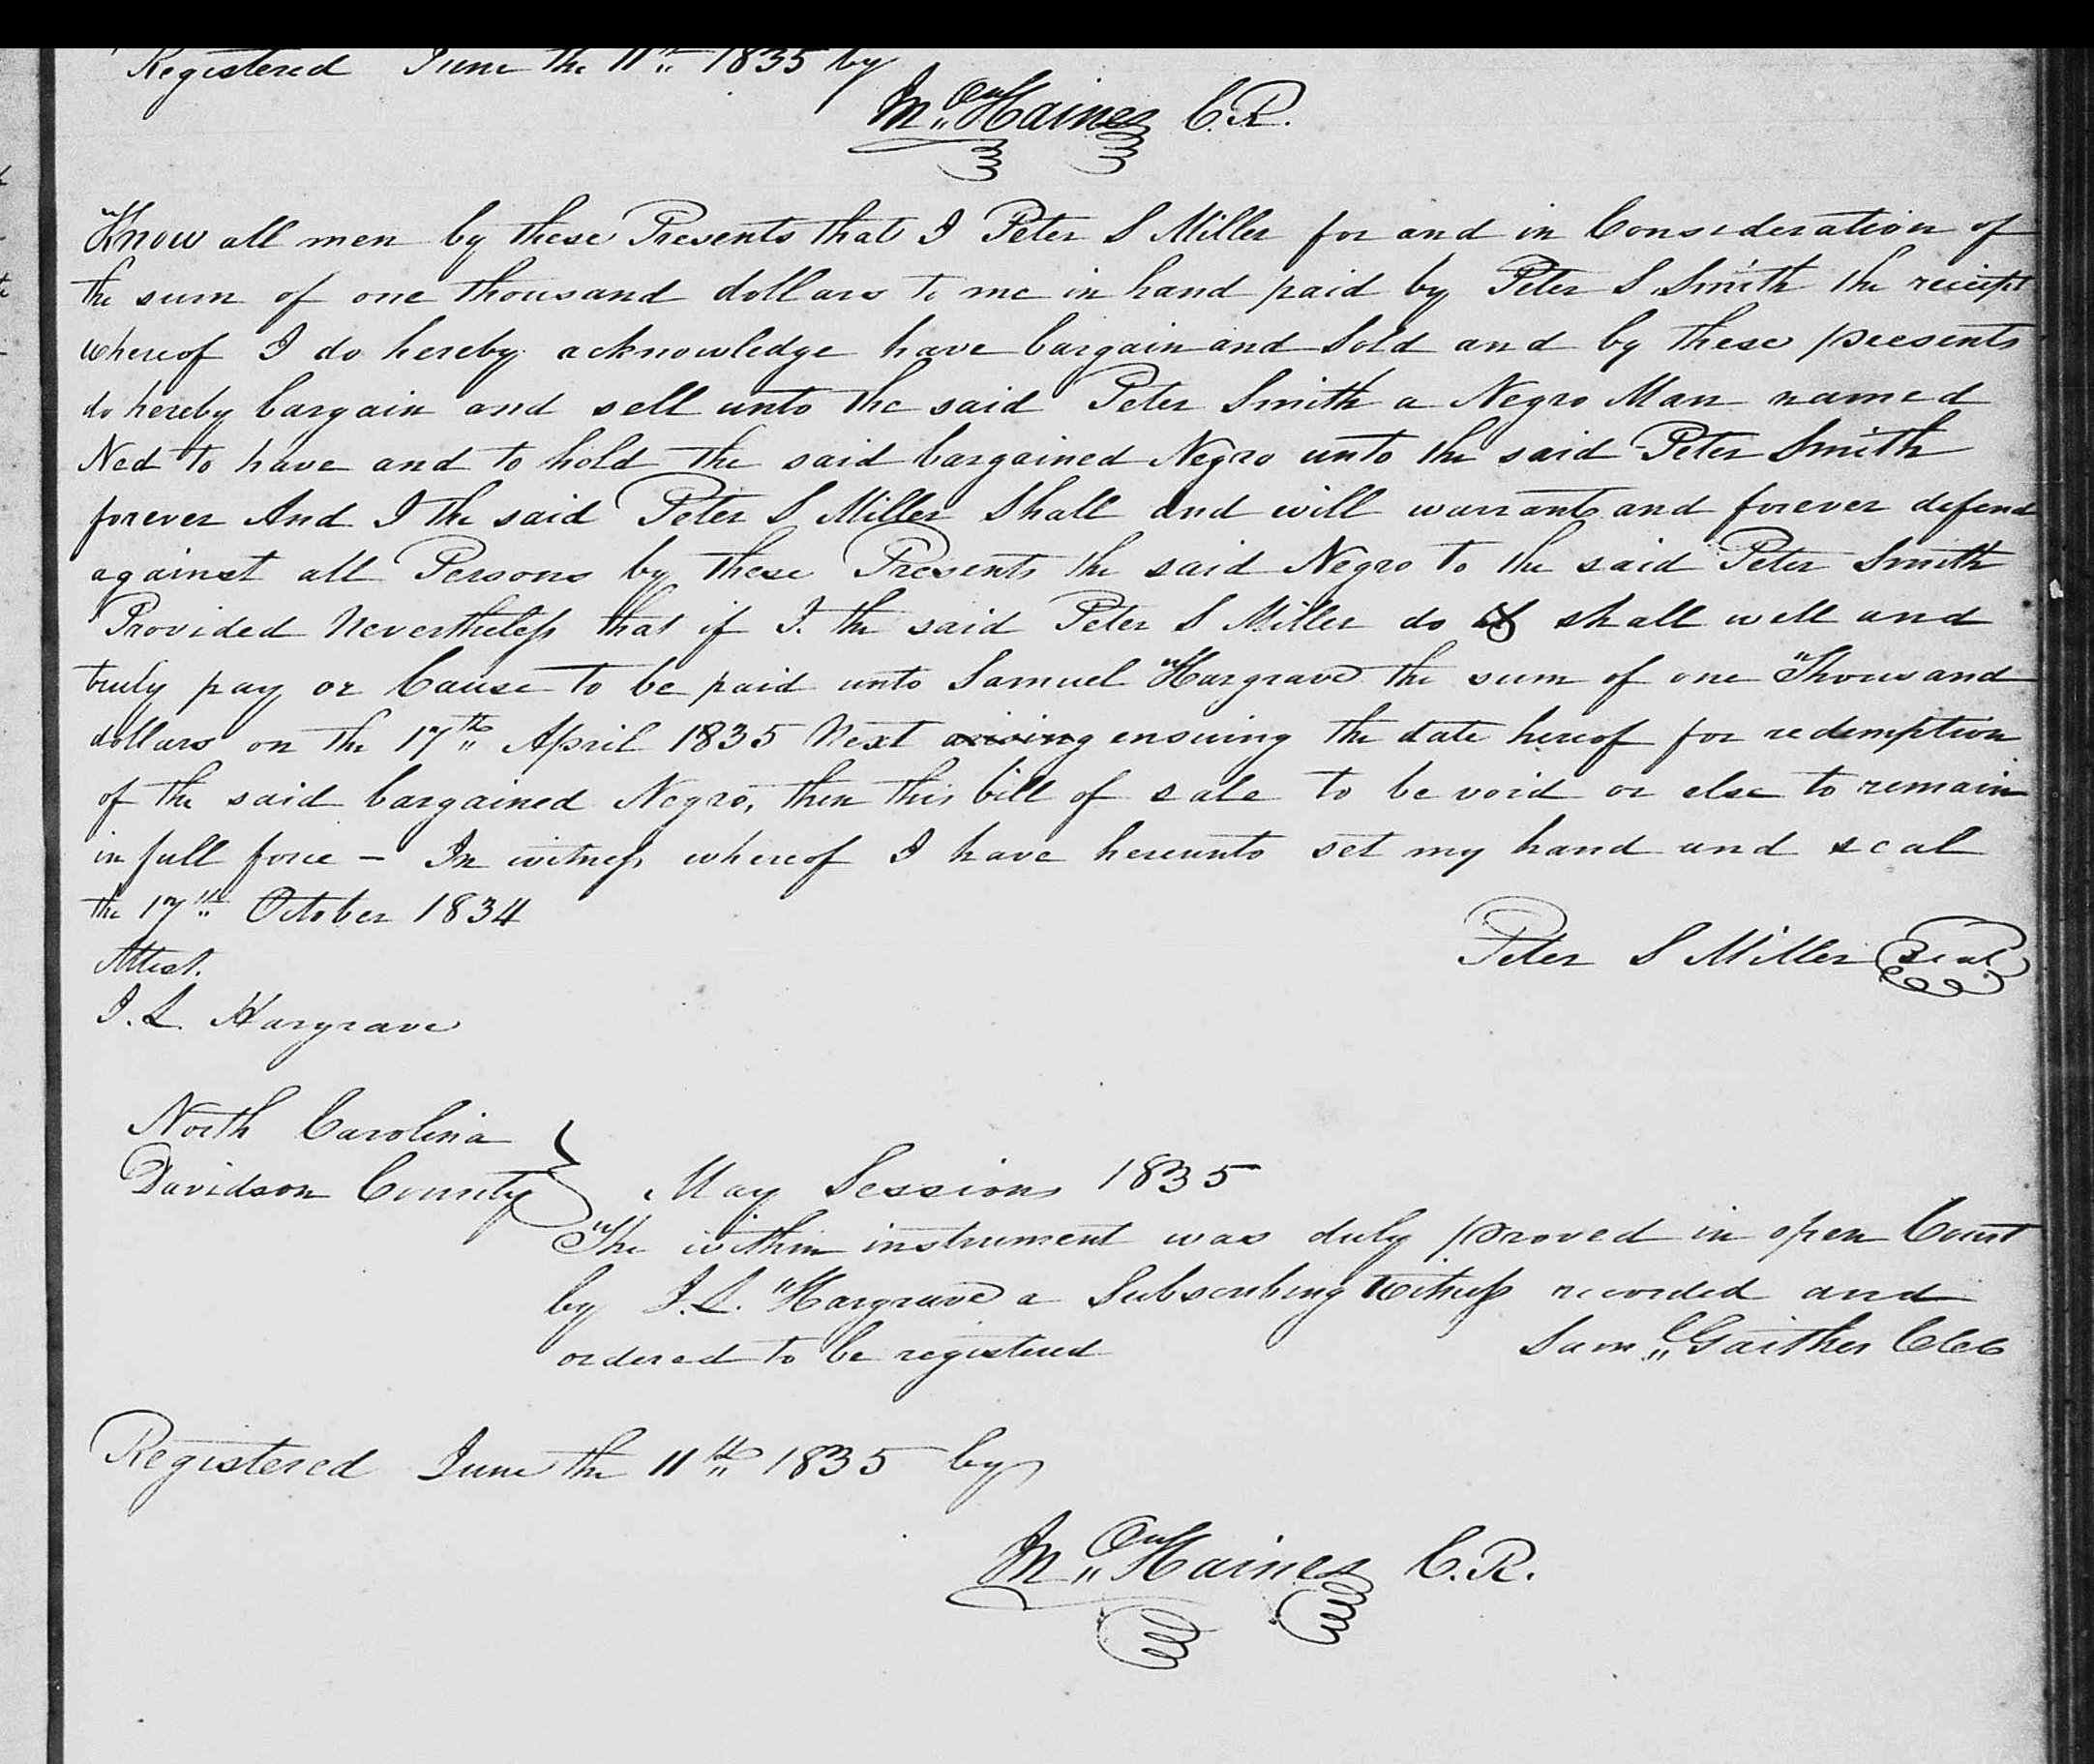 Registered June the 11th 1835 by
Mc Haines C.R.
Know all men by these Presents that I Peter S Miller for and in Consideration of
the sum of one thousand dollars to me in hand paid by Peter S. Smith the receipt
whereof I do hereby acknowledge have bargain and Sold and by these presents
do hereby bargain and sell unto the said Peter Smith a Negro Man named
Ned to have and to hold the said bargained Negro unto the said Peter Smith
forever And I the said Peter S Miller Shall and will warrant and forever defend
against all Persons by these Presents the said Negro to the said Peter Smith
Provided Nevertheless that if I. the said Peter S Miller do shall well and
truly pay or Cause to be paid unto Samuel Hargrave the sum of one Thousand
dollars on the 17th April 1835 Next arising ensuing the date hereof for redemption
of the said bargained Negro, then this bill of sale to be void or else to remain
in full force - In witness whereof I have hereunto set my hand and seal
the 17th October 1834
Peter S Miller Seal
Attest.
J. L. Hargrave
North Carolina
Davidson County } May Sessions 1835
The within instrument was duly proved in open Court
by J. L. Hargrave a Subscribing Witness recorded and
ordered to be registered Saml Gaither Clk
Registered June the 11th 1835 by
Haines C.R.